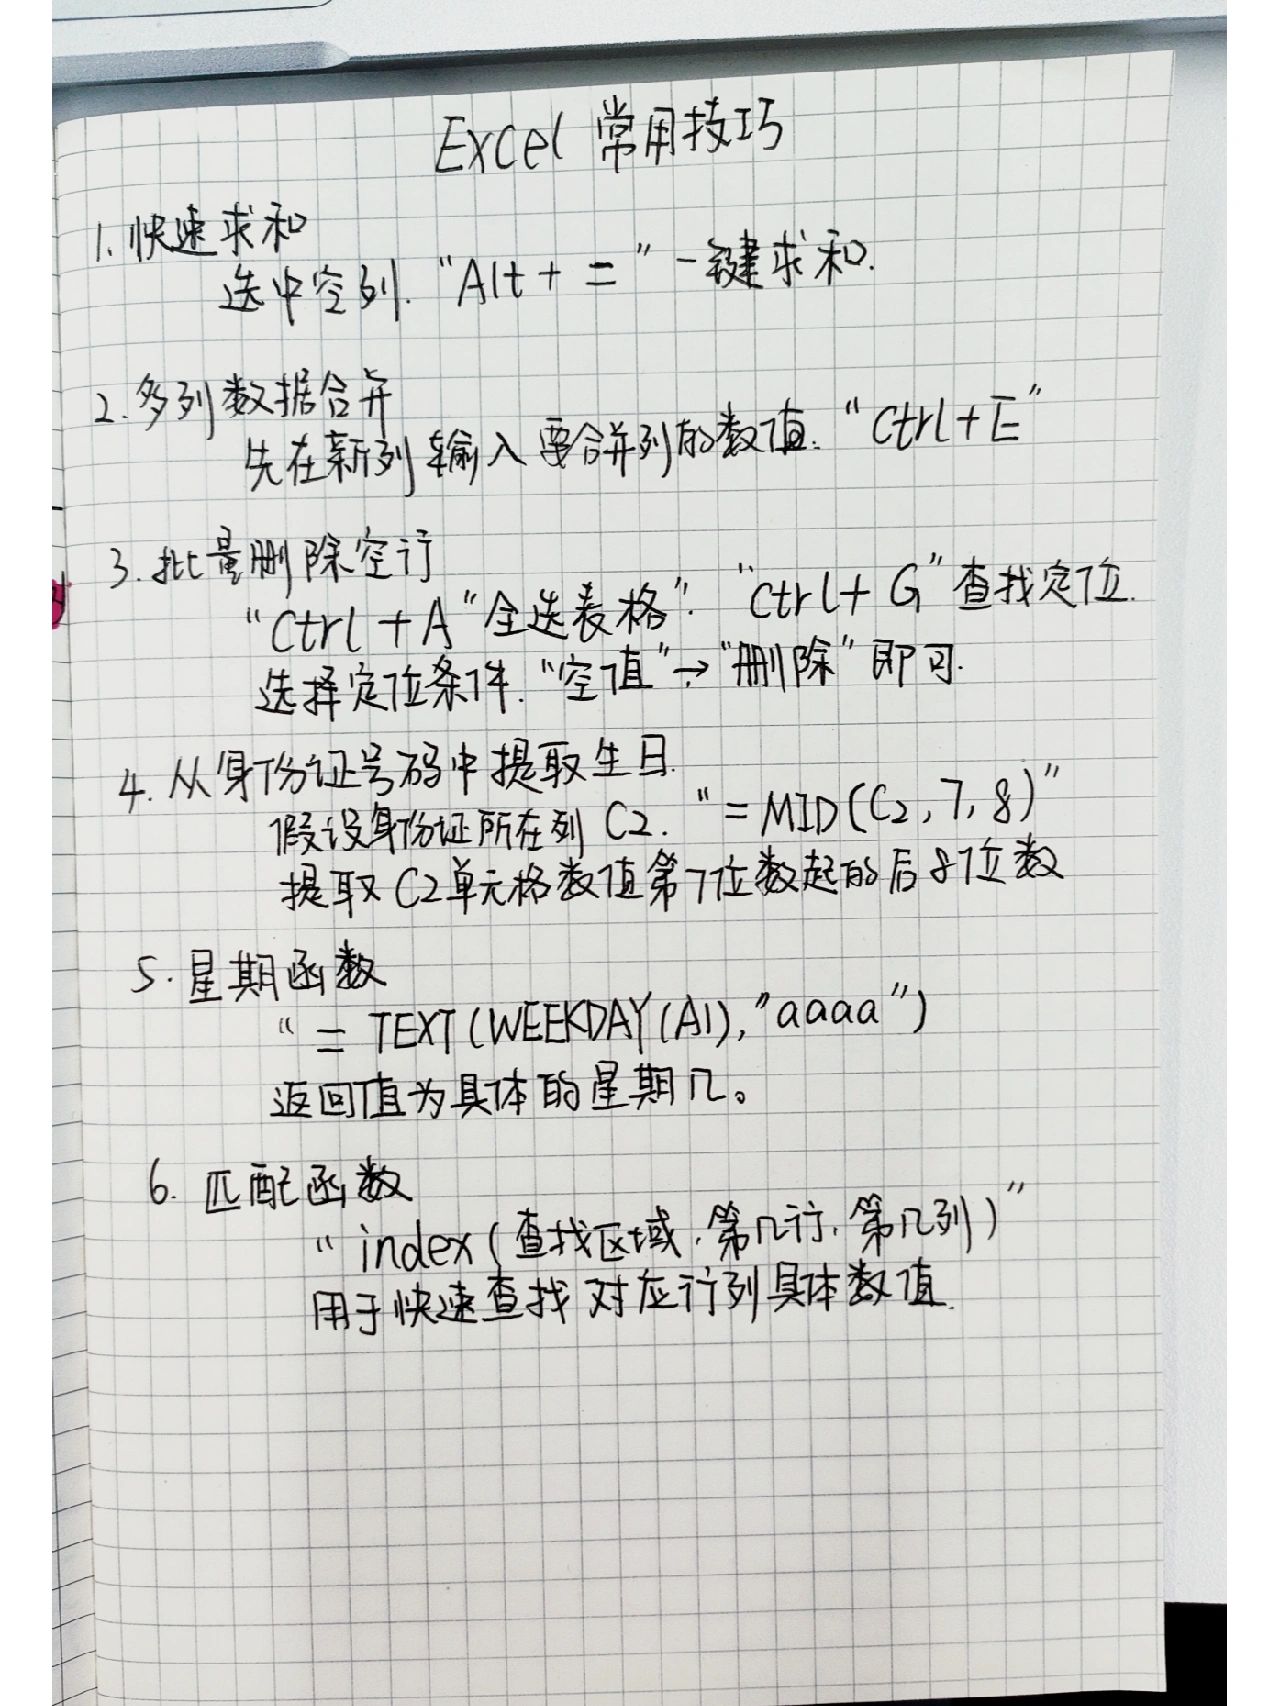 Excel 常用技巧
1. 快速求和
选中空列. “Alt + =” 一键求和.
2. 多列数据合并
先在新列输入要合并列的数值. “Ctrl+E”
3. 批量删除空行
“Ctrl + A”全选表格”. “Ctrl+ G”查找定位.
选择定位条件. “空值”→“删除”即可.
4. 从身份证号码中提取生日.
假设身份证所在列 C2. “=MID(C2,7,8)”
提取 C2单元格数值第7位数起的后8位数
5. 星期函数
“= TEXT(WEEKDAY(A1),"aaaa”)
返回值为具体的星期几。
6. 匹配函数
“index(查找区域,第几行,第几列)”
用于快速查找对应行列具体数值.